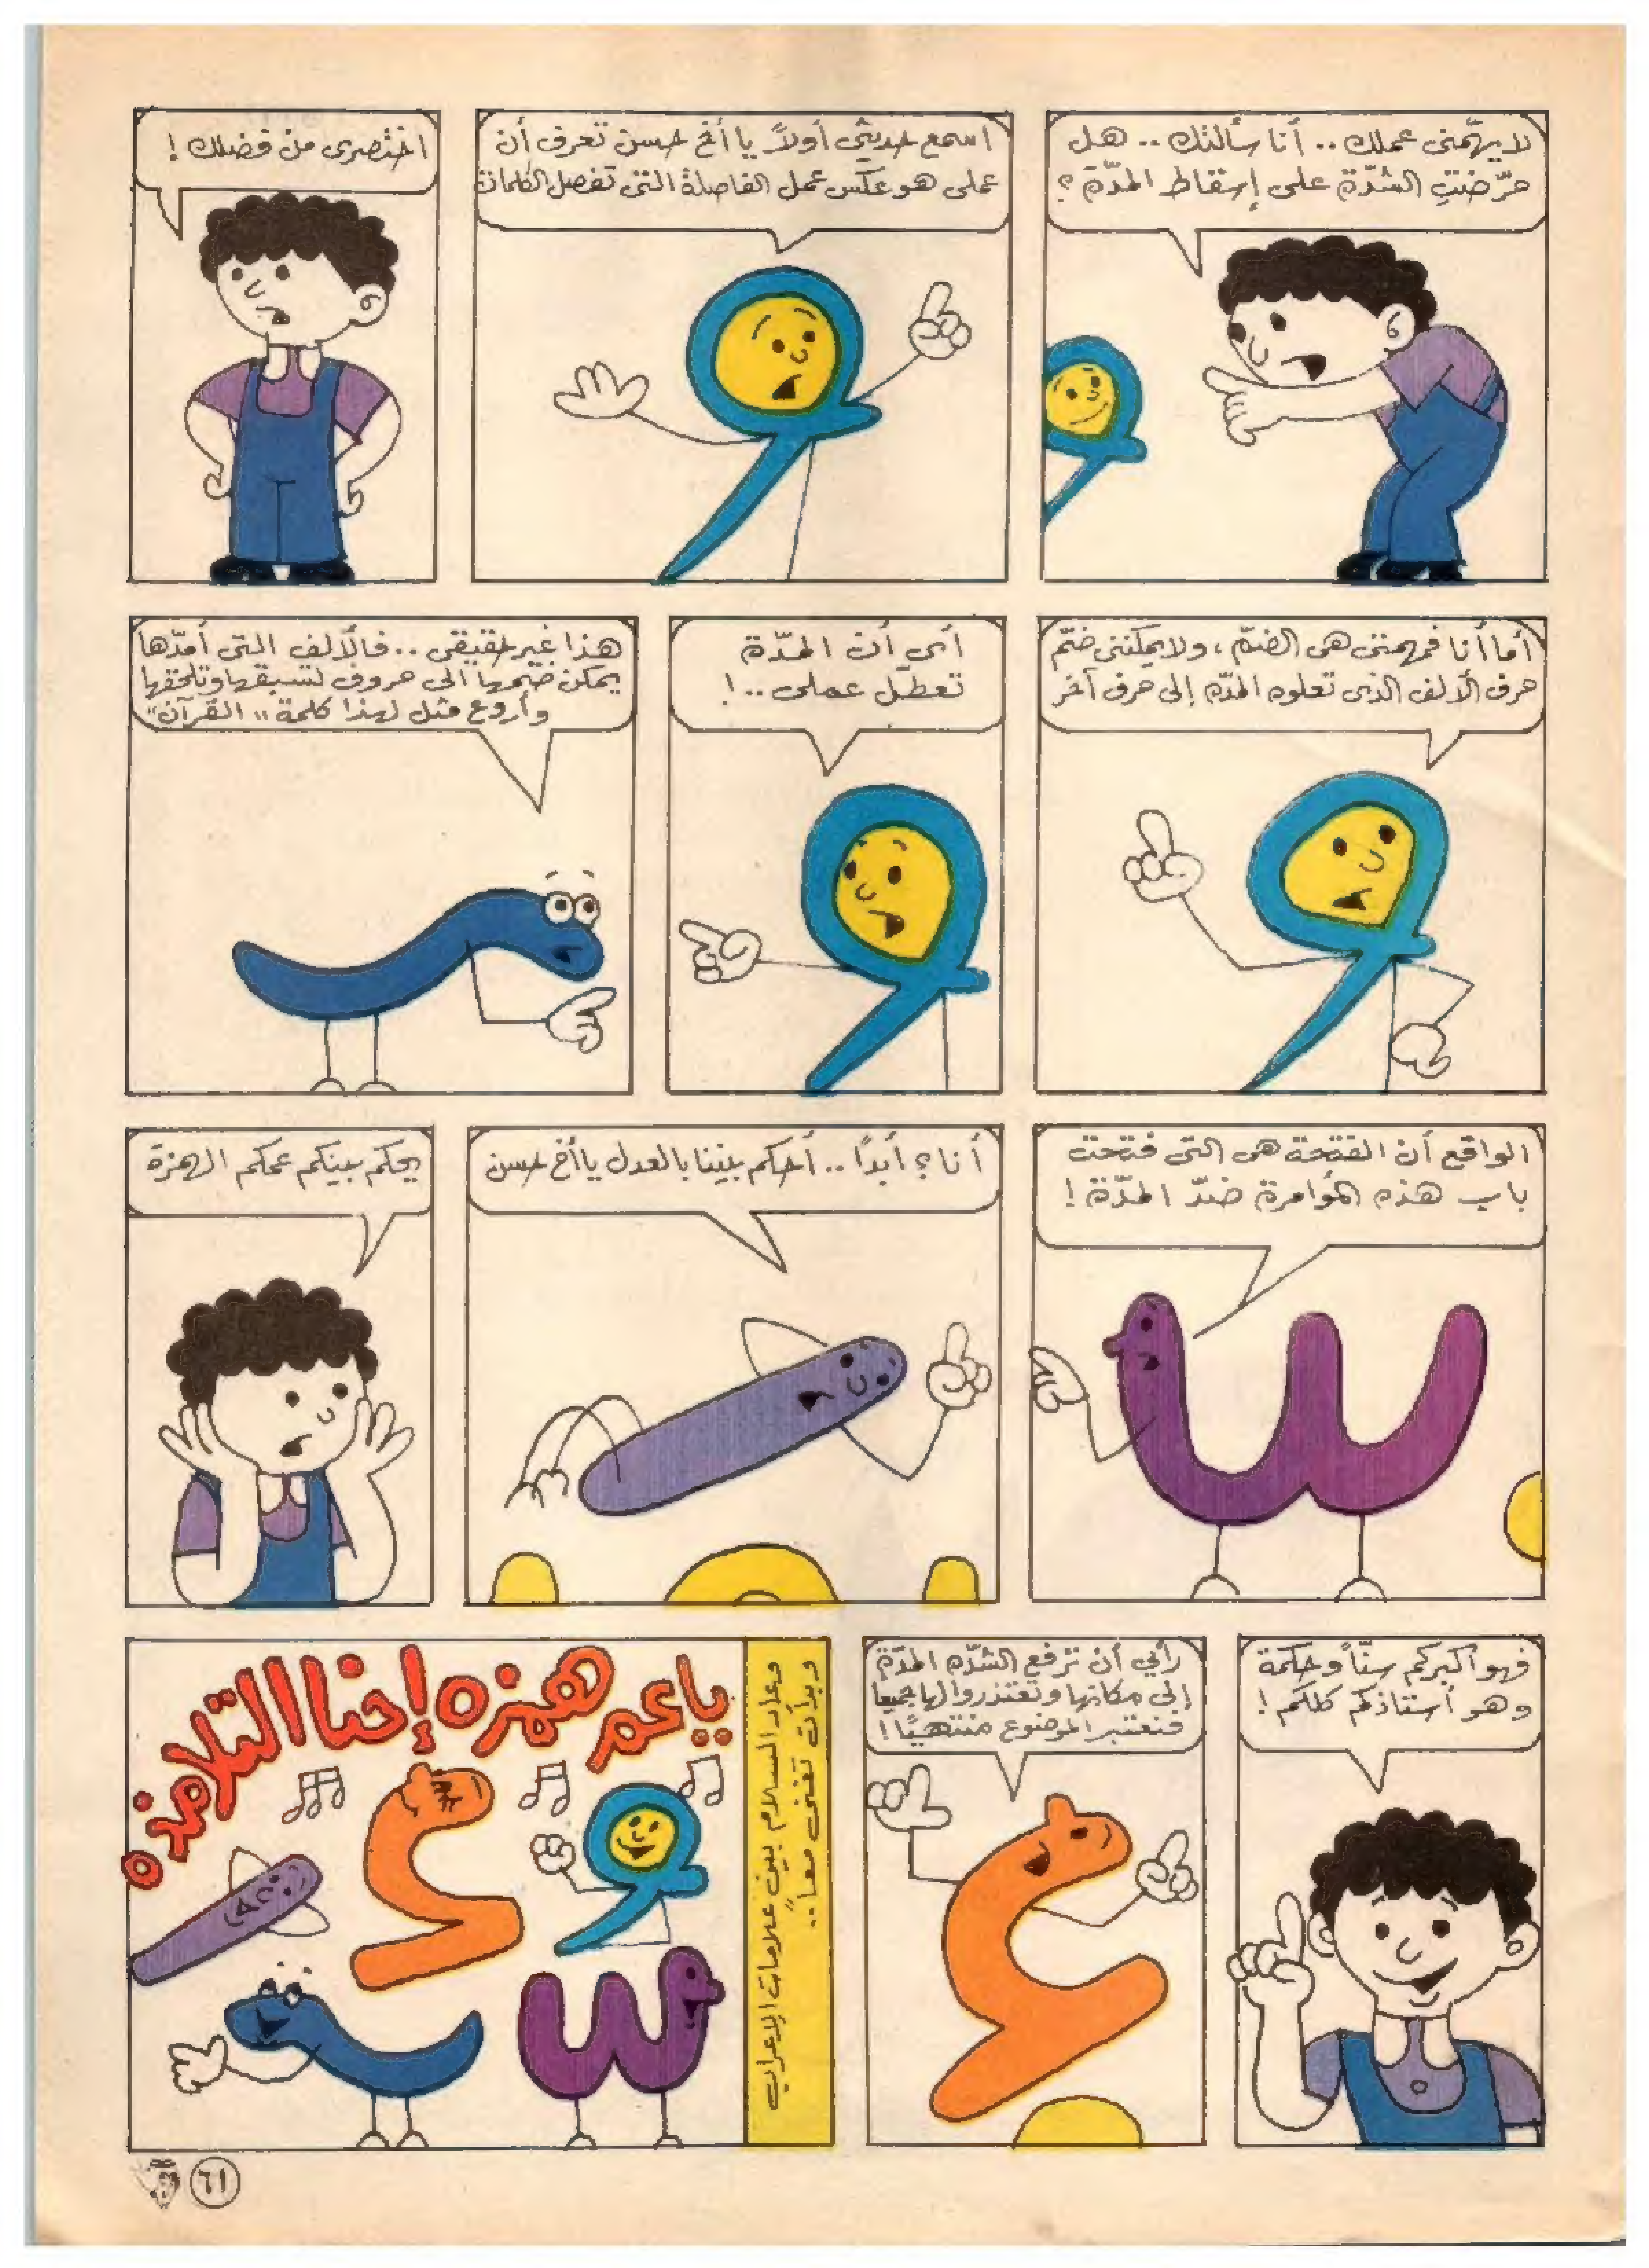 لا يهّمنى عملك .. أنا سألتك .. هل
حرّضتِ الشدّة على إسقاط المدّة ؟
اسمع حديثى أولاً يا أخ حسن تعرف أن
عملى هو عكس عمل الفاصلة التى تفصل الكلمات
اختصرى من فضلك !
أما أنا فمهمتى هى الضمّ ، ولا يمكننى ضمّ
حرف الألف الذى تعلوه المدّة إلى حرف آخر
أى أن المدّة
تعطّل عملى .. !
هذا غير حقيقى .. فالألف التى أمدّها
يمكن ضمها الى حروف تسبقها وتلحقها
وأروع مثل لهذا كلمة " القرآن "
الواقع أن الفتحة هى التى فتحت
باب هذه المؤامرة ضدّ المدّة !
أنا ؟ أبدًا .. أحكم بيننا بالعدل يا أخ حسن
يحكم بينكم عمكم الهمزة
فهو أكبركم سنّاً وحكمة
وهو أستاذكم كلكم !
رأيي أن ترفع الشدّة المدّة
إلى مكانها وتعتذروا لها جميعا
فنعتبر الموضوع منتهيًا !
وعاد السلام بين علامات الإعراب
وبدأت تغنى معاً ..
يا عم همزه إحنا التلامذه
٦١